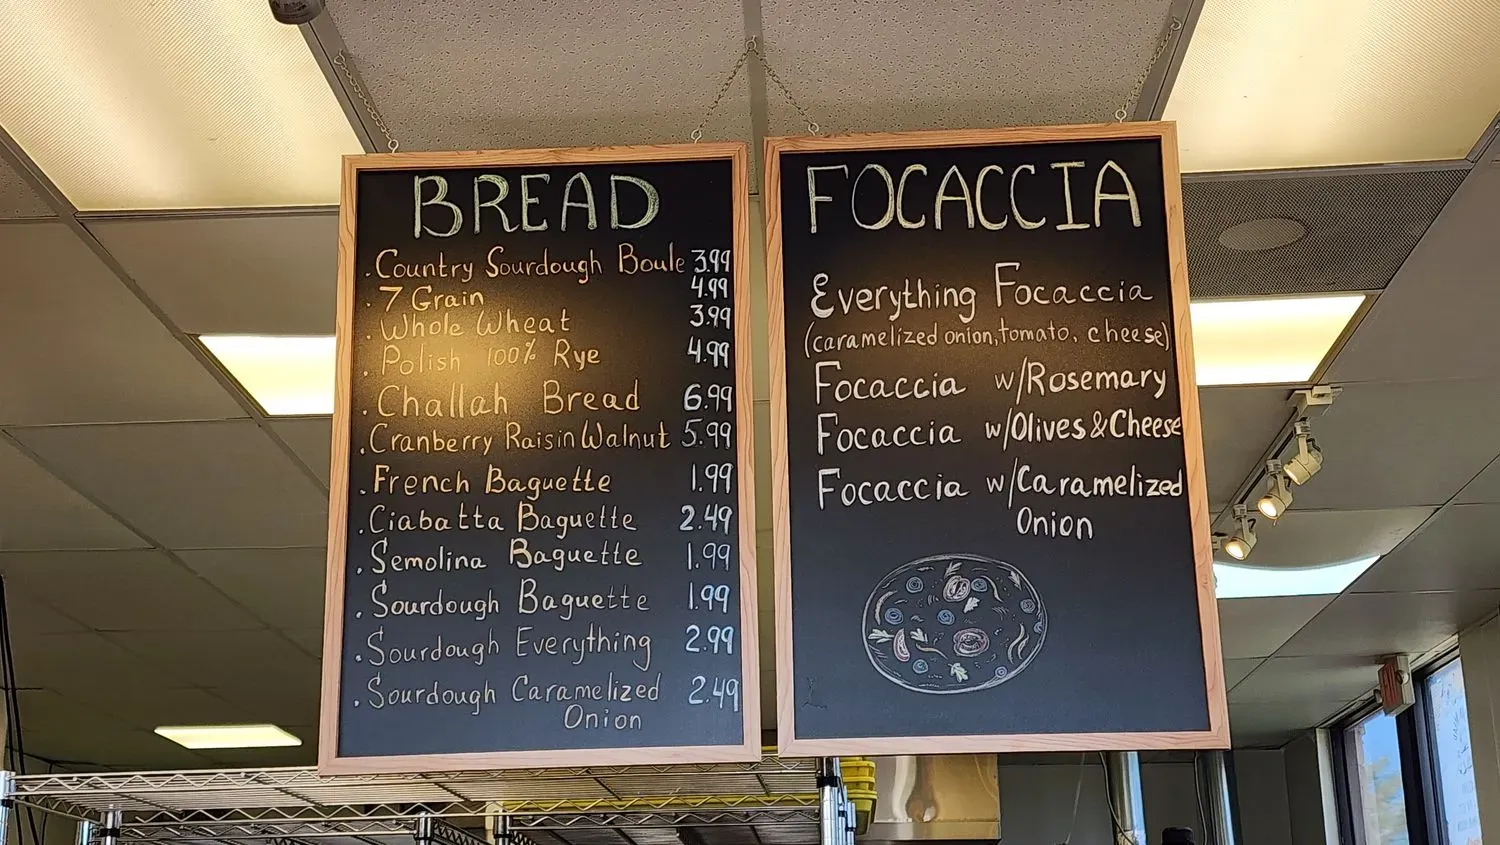 BREAD
.Country Sourdough Boule 3.99
.7 Grain 4.99
.Whole Wheat 3.99
.Polish 100% Rye 4.99
.Challah Bread 6.99
.Cranberry Raisin Walnut 5.99
.French Baguette 1.99
.Ciabatta Baguette 2.49
.Semolina Baguette 1.99
.Sourdough Baguette 1.99
.Sourdough Everything 2.99
.Sourdough Caramelized 2.49
Onion
FOCACCIA
Everything Focaccia
(caramelized onion, tomato, cheese)
Focaccia w/Rosemary
Focaccia w/Olives&Cheese
Focaccia w/Caramelized
Onion